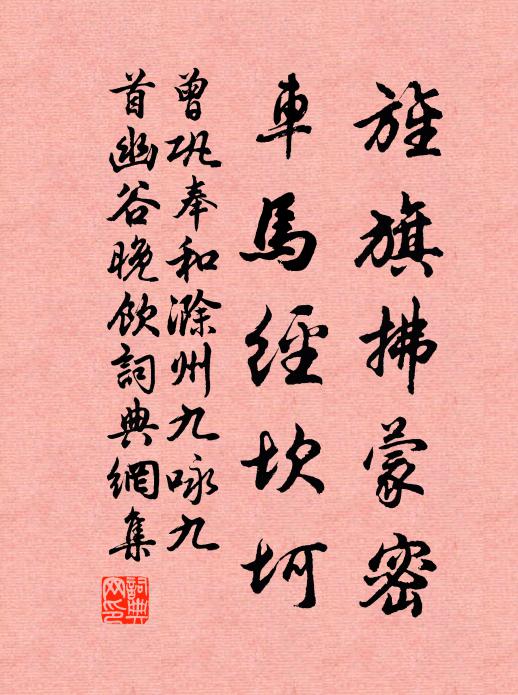 旌旗拂蒙密
車馬經坎坷
曾巩奉和滁州九咏九
首幽谷晚飲詞典網集
詞典网印